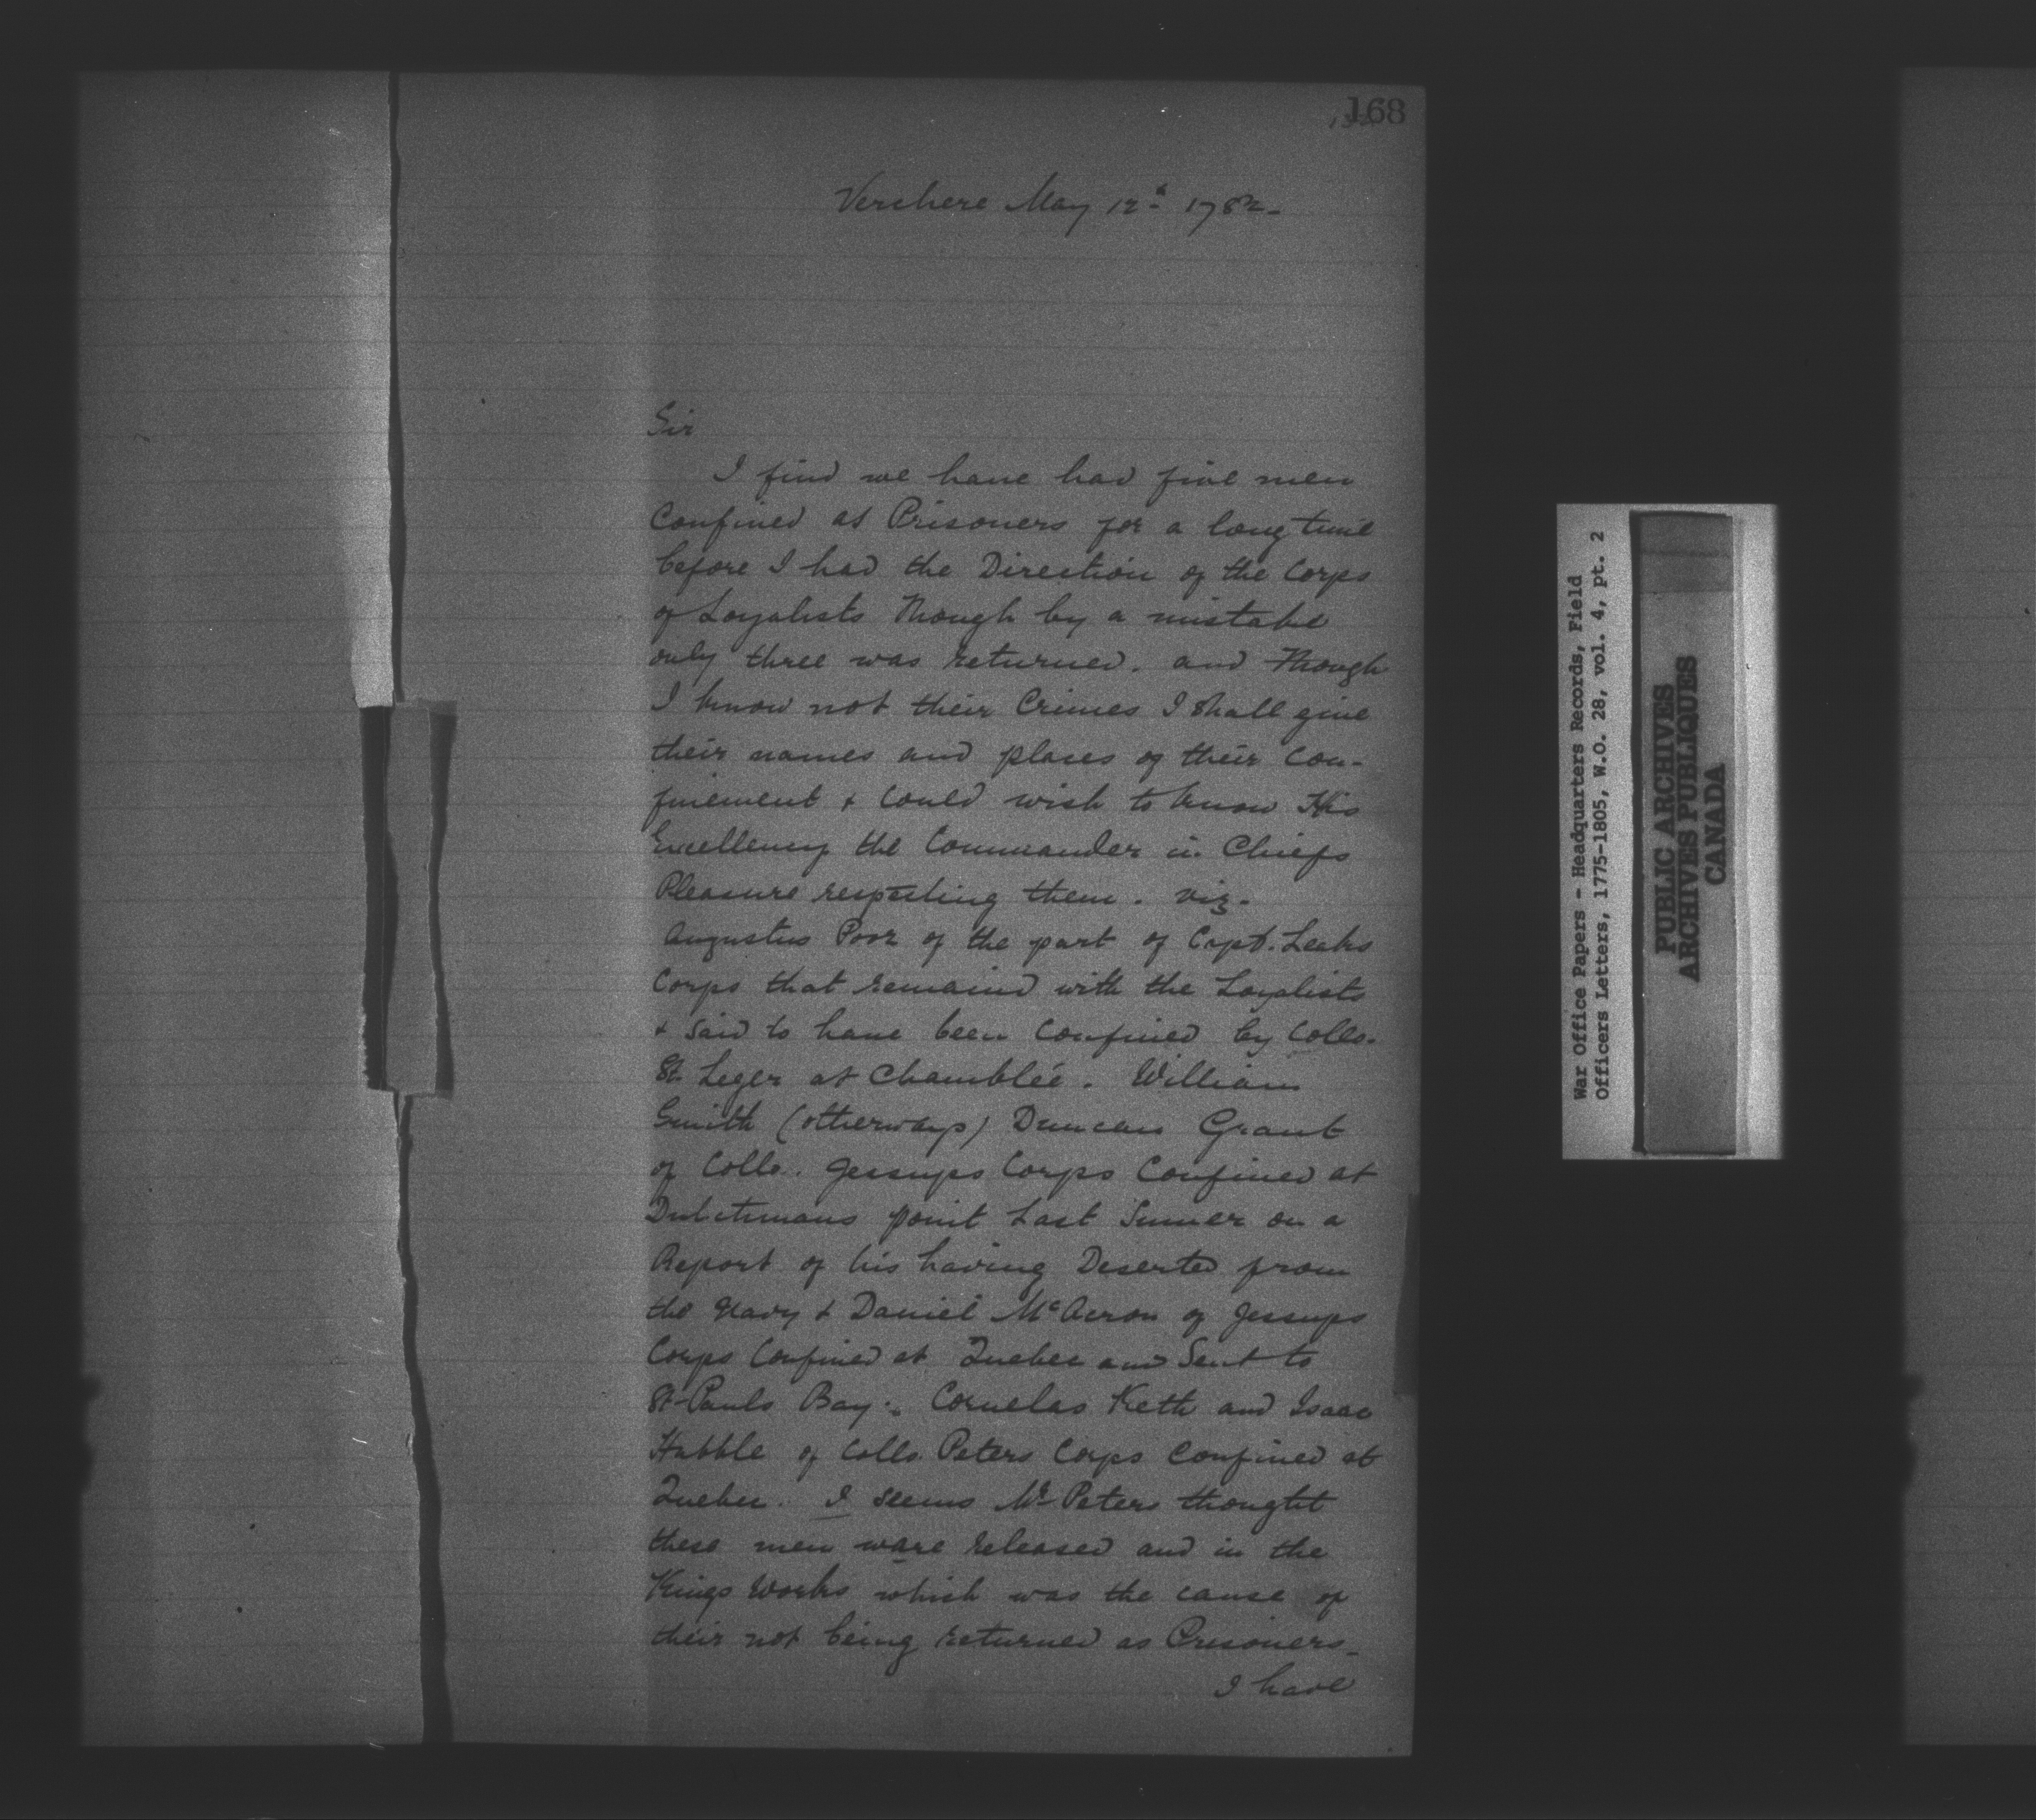 168
Verchere May 12th 1782-
Sir
I find we have had five men
Confined as Prisoners for a long time
before I had the Direction of the Corps
of Loyalists Though by a mistake
only three was returned. and Though
I know not their Crimes I shall give
their names and places of their Con-
finement & Could wish to know His
Excellency the Commander in Chiefs
Pleasure respecting them. viz.
Augustus Poor of the part of Capt. Leaks
Corps that remained with the Loyalists
& Said to have been Confined by Collo.
St. Leger at Chamblée. William
Smith (otherways) Duncan Grant
of Collo. Jessups Corps Confined at
Dutchmans point Last Sumer on a
Report of his having Deserted from
the Navy & Daniel of Jessups
Corps Confined at Quebec and Sent to
St Pauls Bay. Cornelas Keth and Isaac
Hubble of Collo. Peters Corps Confined at
Quebec. I seems Mr Peters thought
these men ware released and in the
Kings Works which was the cause of
their not being returned as Prisoners-
I have
War Office Papers - Headquarters Records, Field
Officers Letters, 1775-1805, W.O. 28, vol. 4, pt. 2
PUBLIC ARCHIVES
ARCHIVES PUBLIQUES
CANADA